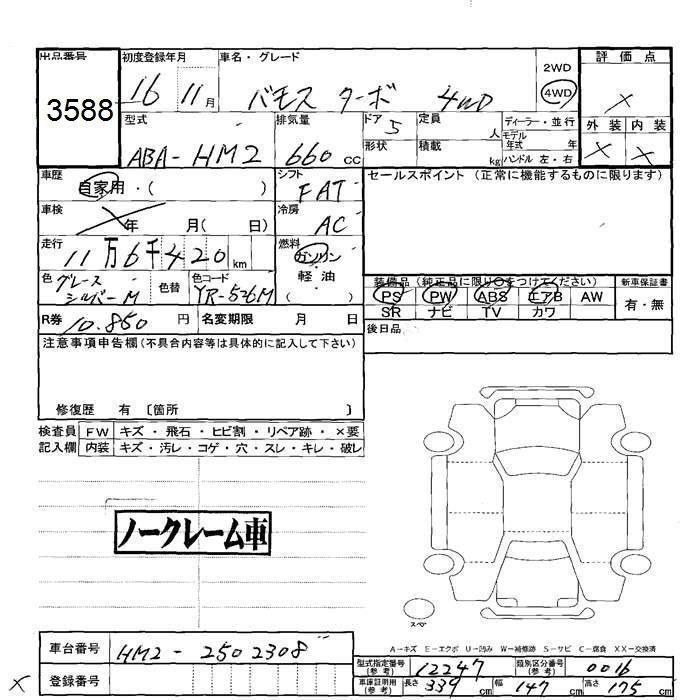 出品番号 初度登録年月 車名・グレード 2WD 評価点
3588 16 11月 バモス ターボ 4WD 4WD ×
型式 排気量 ドア 5 定員 人 ディーラー・並行 外装 内装
ABA-HM2 660 cc 形状 積載 kg モデル年式 年 ハンドル 左・右 × ×
車歴 自家用・( ) シフト FAT セールスポイント (正常に機能するものに限ります)
車検 年 月( 日) 冷房 AC
走行 11万6千420 km 燃料 ガソリン
色 グレース シルバーM 色替 色コード YR-536M 軽油 ( )
装備品 (純正品に限り○をつけてください) 新車保証書
PS PW ABS エアB AW 有・無
SR ナビ TV カワ
R券 10.850 円 名変期限 月 日 後日品
注意事項申告欄(不具合内容等は具体的に記入して下さい)
修復歴 有 〔箇所 〕
検査員 FW キズ・飛石・ヒビ割・リペア跡・×要
記入欄 内装 キズ・汚レ・コゲ・穴・スレ・キレ・破レ
ノークレーム車
スペア
A-キズ E-エクボ U-凹み W-補修跡 S-サビ C-腐食 XX-交換済
車台番号 HM2-2502308 型式指定番号(参考) 12247 類別区分番号(参考) 0016
登録番号 車庫証明用(参考) 長さ 339 cm 幅 147 cm 高さ 175 cm
×